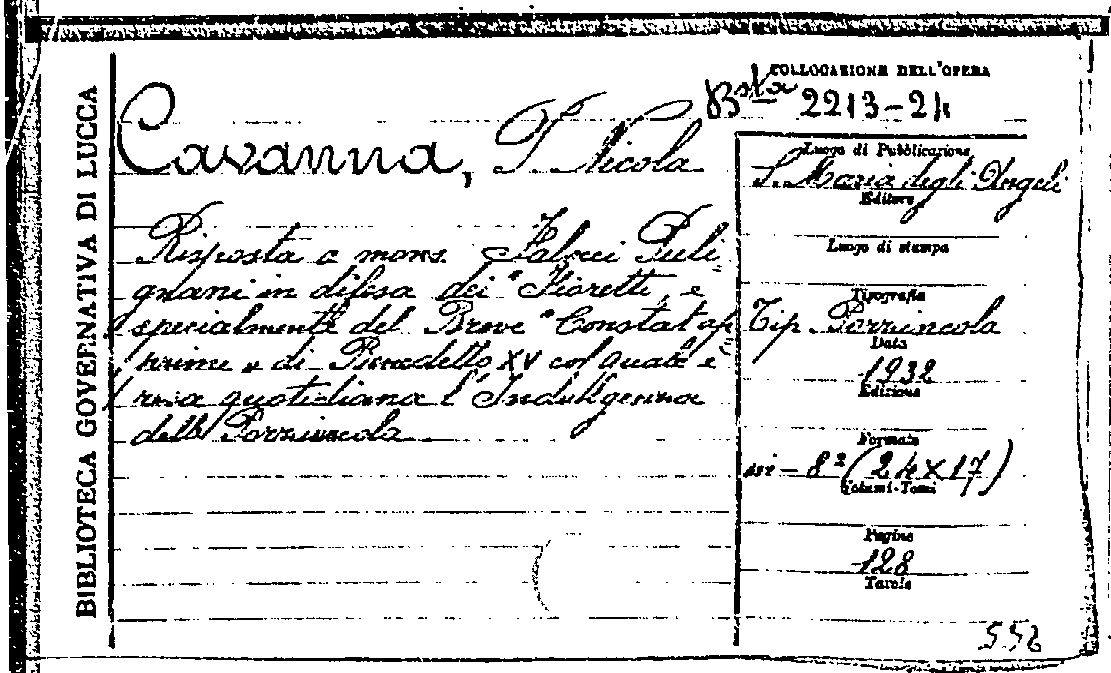 BIBLIOTECA GOVERNATIVA DI LUCCA
COLLOCAZIONE DELL'OPERA
Bsta 2213-24
Cavanna, P. Nicola
Risposta a mons. Faloci Puli
gnani in difesa dei "Fioretti, e
specialmente del Breve "Constat ap
prime „ di Benedetto XV col quale è
resa quotidiana l'Indulgenza
della Porziuncola
Luogo di Pubblicazione
S. Maria degli Angeli
Editore
Luogo di stampa
Tipografia
Tip. Porziuncola
Data
1932
Edizione
Formato
in-8º (24x17)
Volumi-Tomi
Pagine
128
Tavole